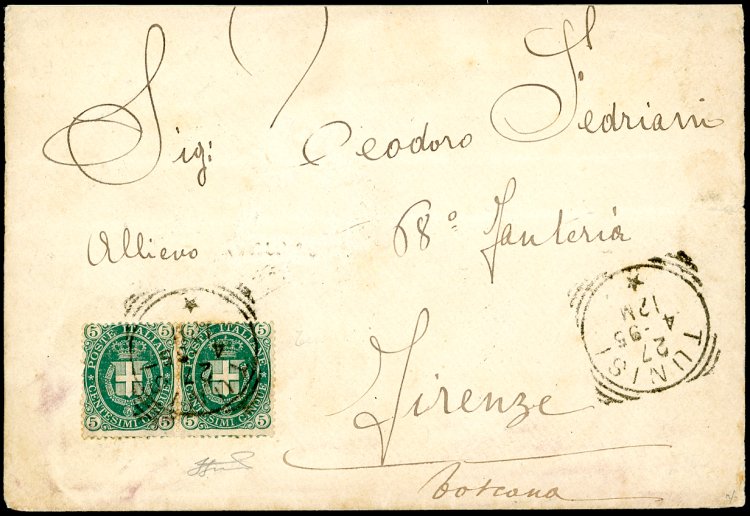 Sig: Teodoro Fedriani
Allievo 68° Fanteria
Firenze
Toscana
5 5
POSTE ITALIANE
CENTESIMI CINQUE
5 5
5 5
POSTE ITALIANE
CENTESIMI CINQUE
5 5
TUNISI
27
4 - 95
12 M